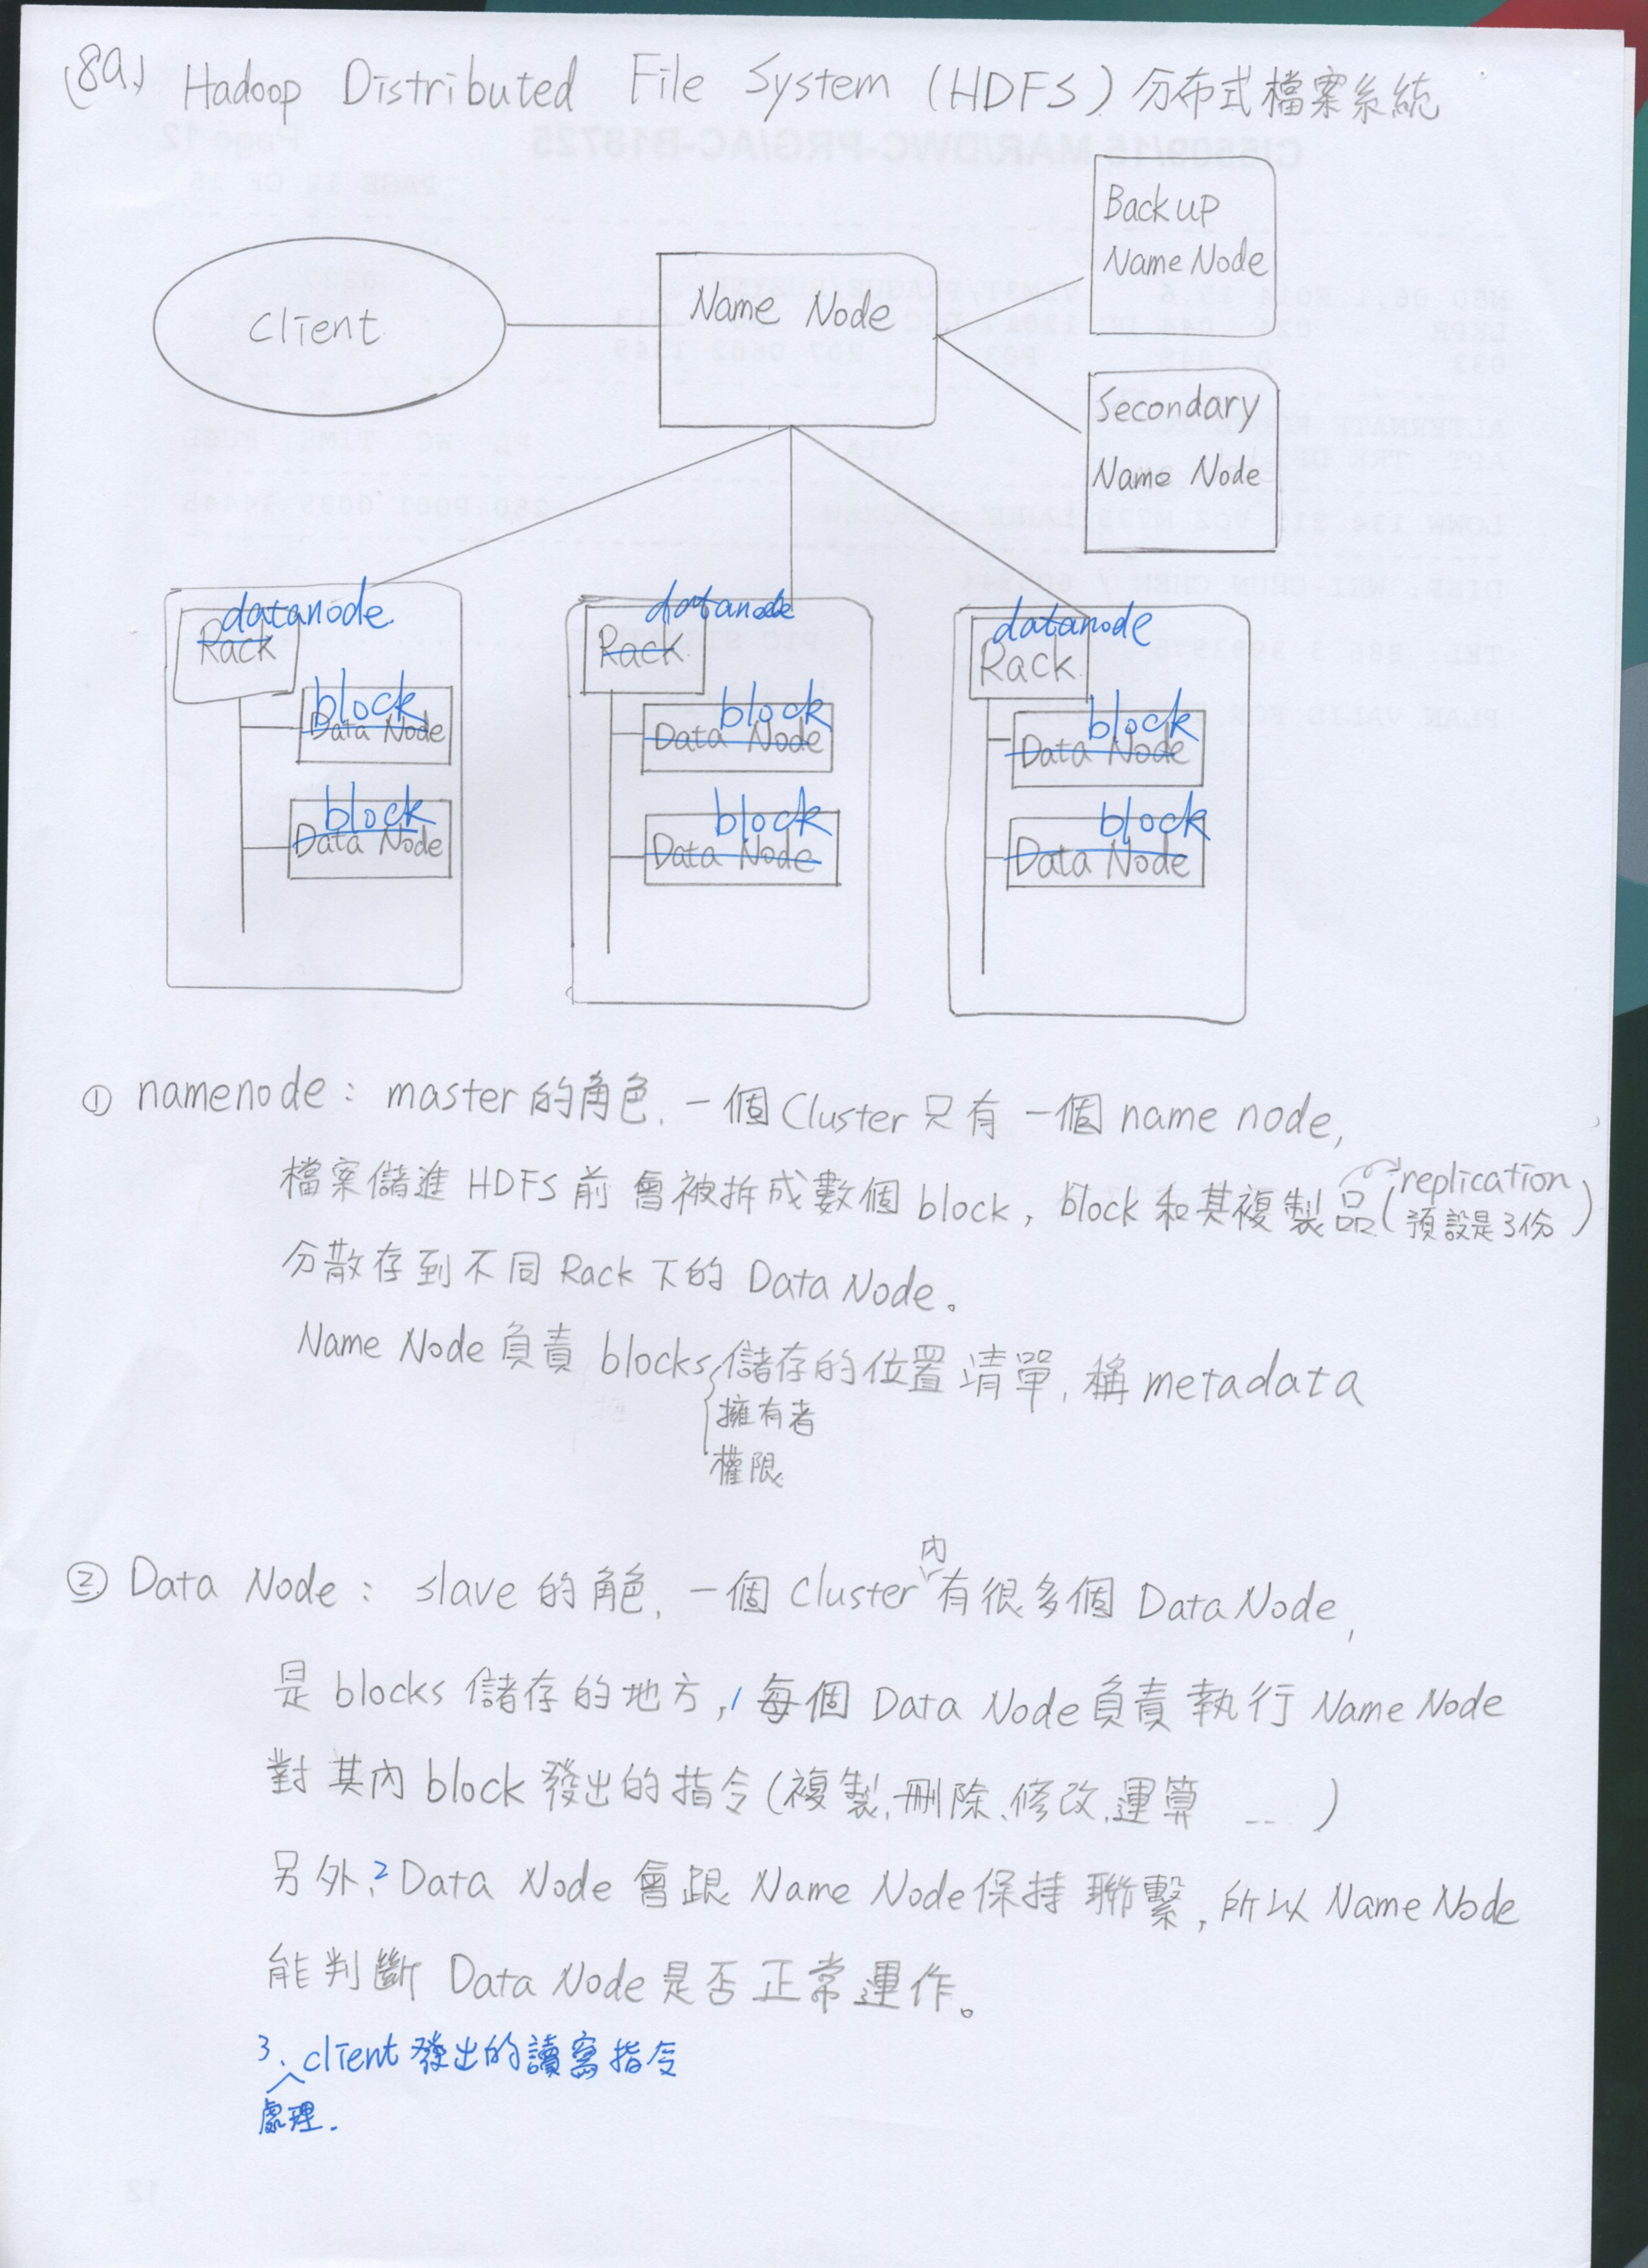 (8a) Hadoop Distributed File System (HDFS) 分布式檔案系統
Client
Name Node
Backup
Name Node
Secondary
Name Node
datanode
Rack
block
Data Node
block
Data Node
datanode
Rack
block
Data Node
block
Data Node
datanode
Rack
block
Data Node
block
Data Node
① namenode : master 的角色, 一個 Cluster 只有 一個 name node,
檔案儲進 HDFS 前 會被拆成數個 block, block 和其複製品 (replication
預設是3份)
分散存到不同 Rack 下的 Data Node。
Name Node 負責 blocks 儲存的位置清單, 稱 metadata
擁有者
權限
② Data Node : slave 的角色, 一個 Cluster 內有很多個 Data Node,
是 blocks 儲存的地方, 1 每個 Data Node 負責 執行 Name Node
對其內 block 發出的指令 (複製、刪除、修改、運算 ... )
另外, 2 Data Node 會跟 Name Node 保持 聯繫, 所以 Name Node
能判斷 Data Node 是否正常運作。
3. 處理 client 發出的讀寫指令